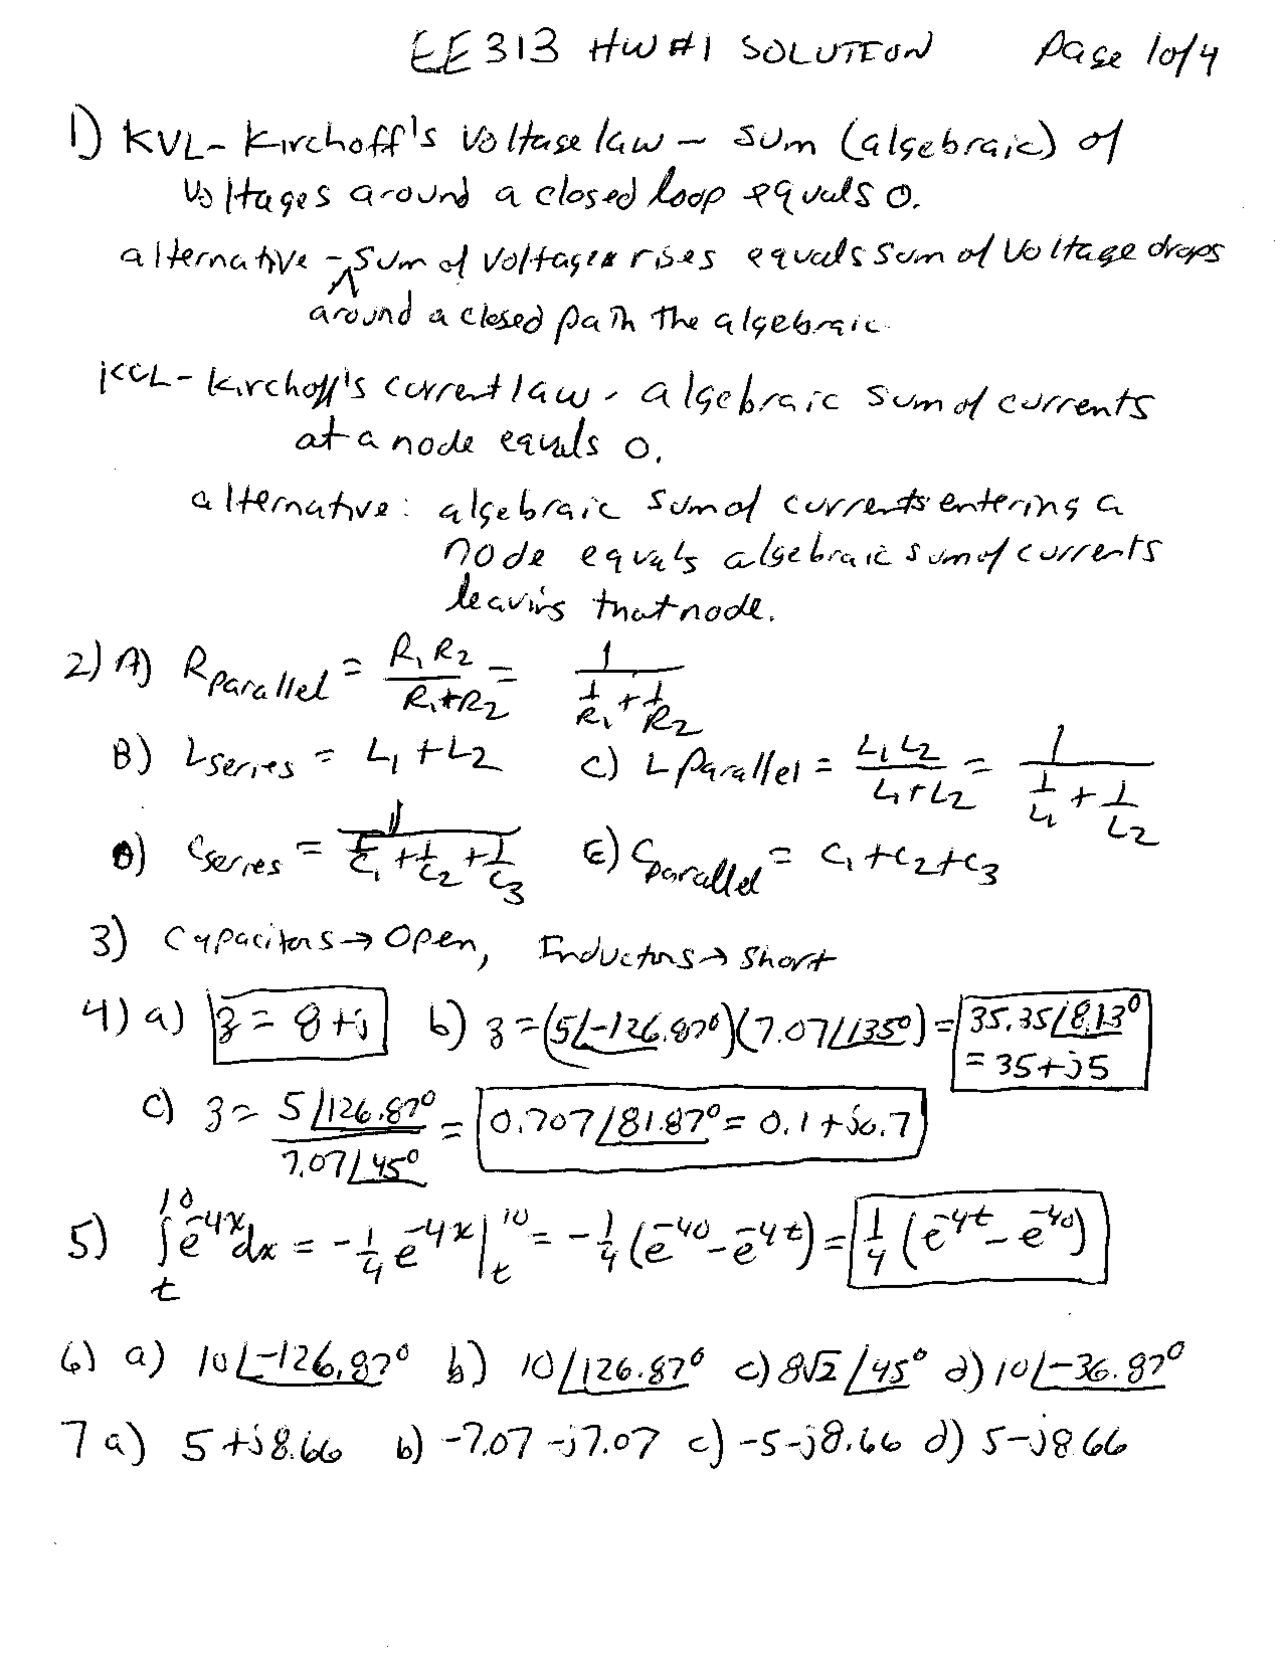 EE313 HW#1 SOLUTION Page 1 of 4
1) KVL - Kirchoff's Voltage law - sum (algebraic) of
voltages around a closed loop equals 0.
alternative - sum of voltage rises equals sum of voltage drops
around a closed path the algebraic
KCL - Kirchoff's current law - algebraic sum of currents
at a node equals 0.
alternative: algebraic sum of currents entering a
node equals algebraic sum of currents
leaving that node.
2) A) Rparallel = R1R2/(R1+R2) = 1/(1/R1 + 1/R2)
B) Lseries = L1 + L2 C) Lparallel = L1L2/(L1+L2) = 1/(1/L1 + 1/L2)
D) Cseries = 1/(1/C1 + 1/C2 + 1/C3) E) Cparallel = C1 + C2 + C3
3) Capacitors → Open, Inductors → Short
4) a) z = 8+j b) z = (5∠-126.87°)(7.07∠135°) = 35.35∠8.13°
= 35+j5
c) z = 5∠126.87°/7.07∠45° = 0.707∠81.87° = 0.1+j0.7
5) ∫_t^10 e^-4x dx = -1/4 e^-4x |_t^10 = -1/4 (e^-40 - e^-4t) = 1/4 (e^-4t - e^-40)
6) a) 10∠-126.87° b) 10∠126.87° c) 8√2∠45° d) 10∠-36.87°
7 a) 5+j8.66 b) -7.07-j7.07 c) -5-j8.66 d) 5-j8.66